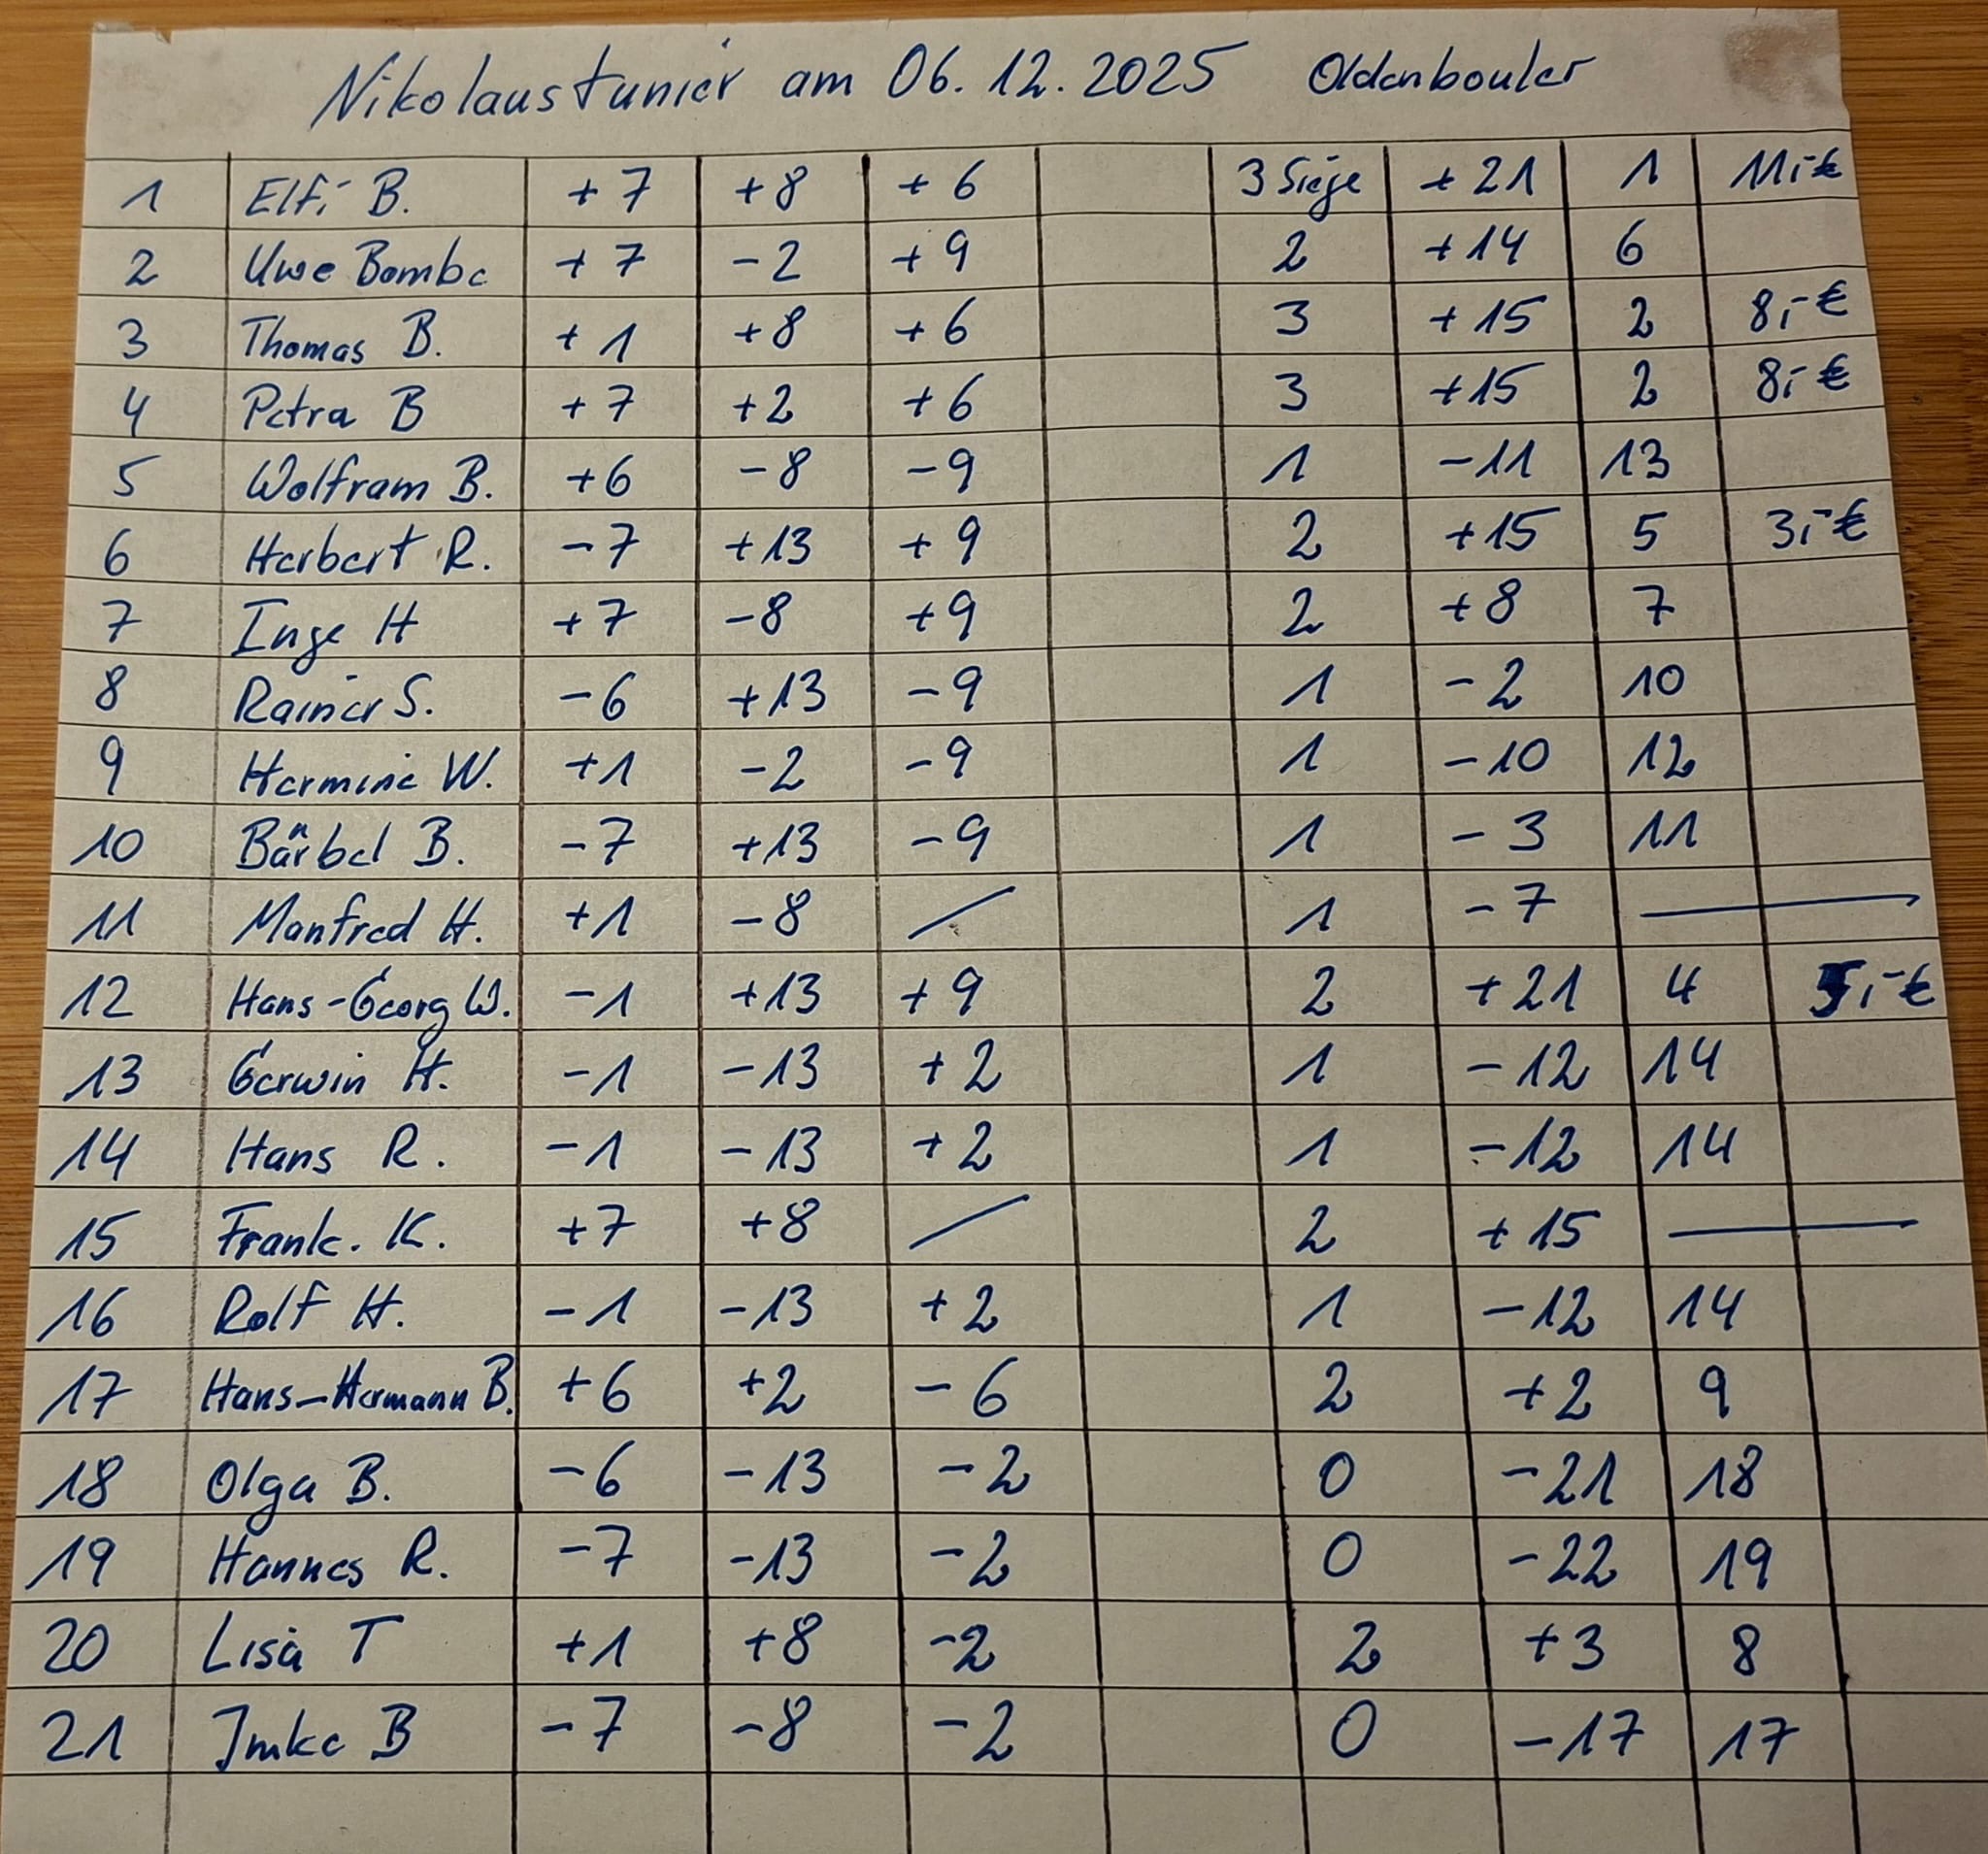 Nikolausturnier am 06.12.2025 Oldenbouler
1 Elfi B. +7 +8 +6 3 Siege +21 1 11,-€
2 Uwe Bombe +7 -2 +9 2 +14 6
3 Thomas B. +1 +8 +6 3 +15 2 8,-€
4 Petra B +7 +2 +6 3 +15 2 8,-€
5 Wolfram B. +6 -8 -9 1 -11 13
6 Herbert R. -7 +13 +9 2 +15 5 3,-€
7 Inge H +7 -8 +9 2 +8 7
8 Rainer S. -6 +13 -9 1 -2 10
9 Hermine W. +1 -2 -9 1 -10 12
10 Bärbel B. -7 +13 -9 1 -3 11
11 Manfred H. +1 -8 / 1 -7 —
12 Hans-Georg W. -1 +13 +9 2 +21 4 5,-€
13 Gerwin H. -1 -13 +2 1 -12 14
14 Hans R. -1 -13 +2 1 -12 14
15 Frank. K. +7 +8 / 2 +15 —
16 Rolf H. -1 -13 +2 1 -12 14
17 Hans-Hermann B. +6 +2 -6 2 +2 9
18 Olga B. -6 -13 -2 0 -21 18
19 Hannes R. -7 -13 -2 0 -22 19
20 Lisa T +1 +8 -2 2 +3 8
21 Imke B -7 -8 -2 0 -17 17